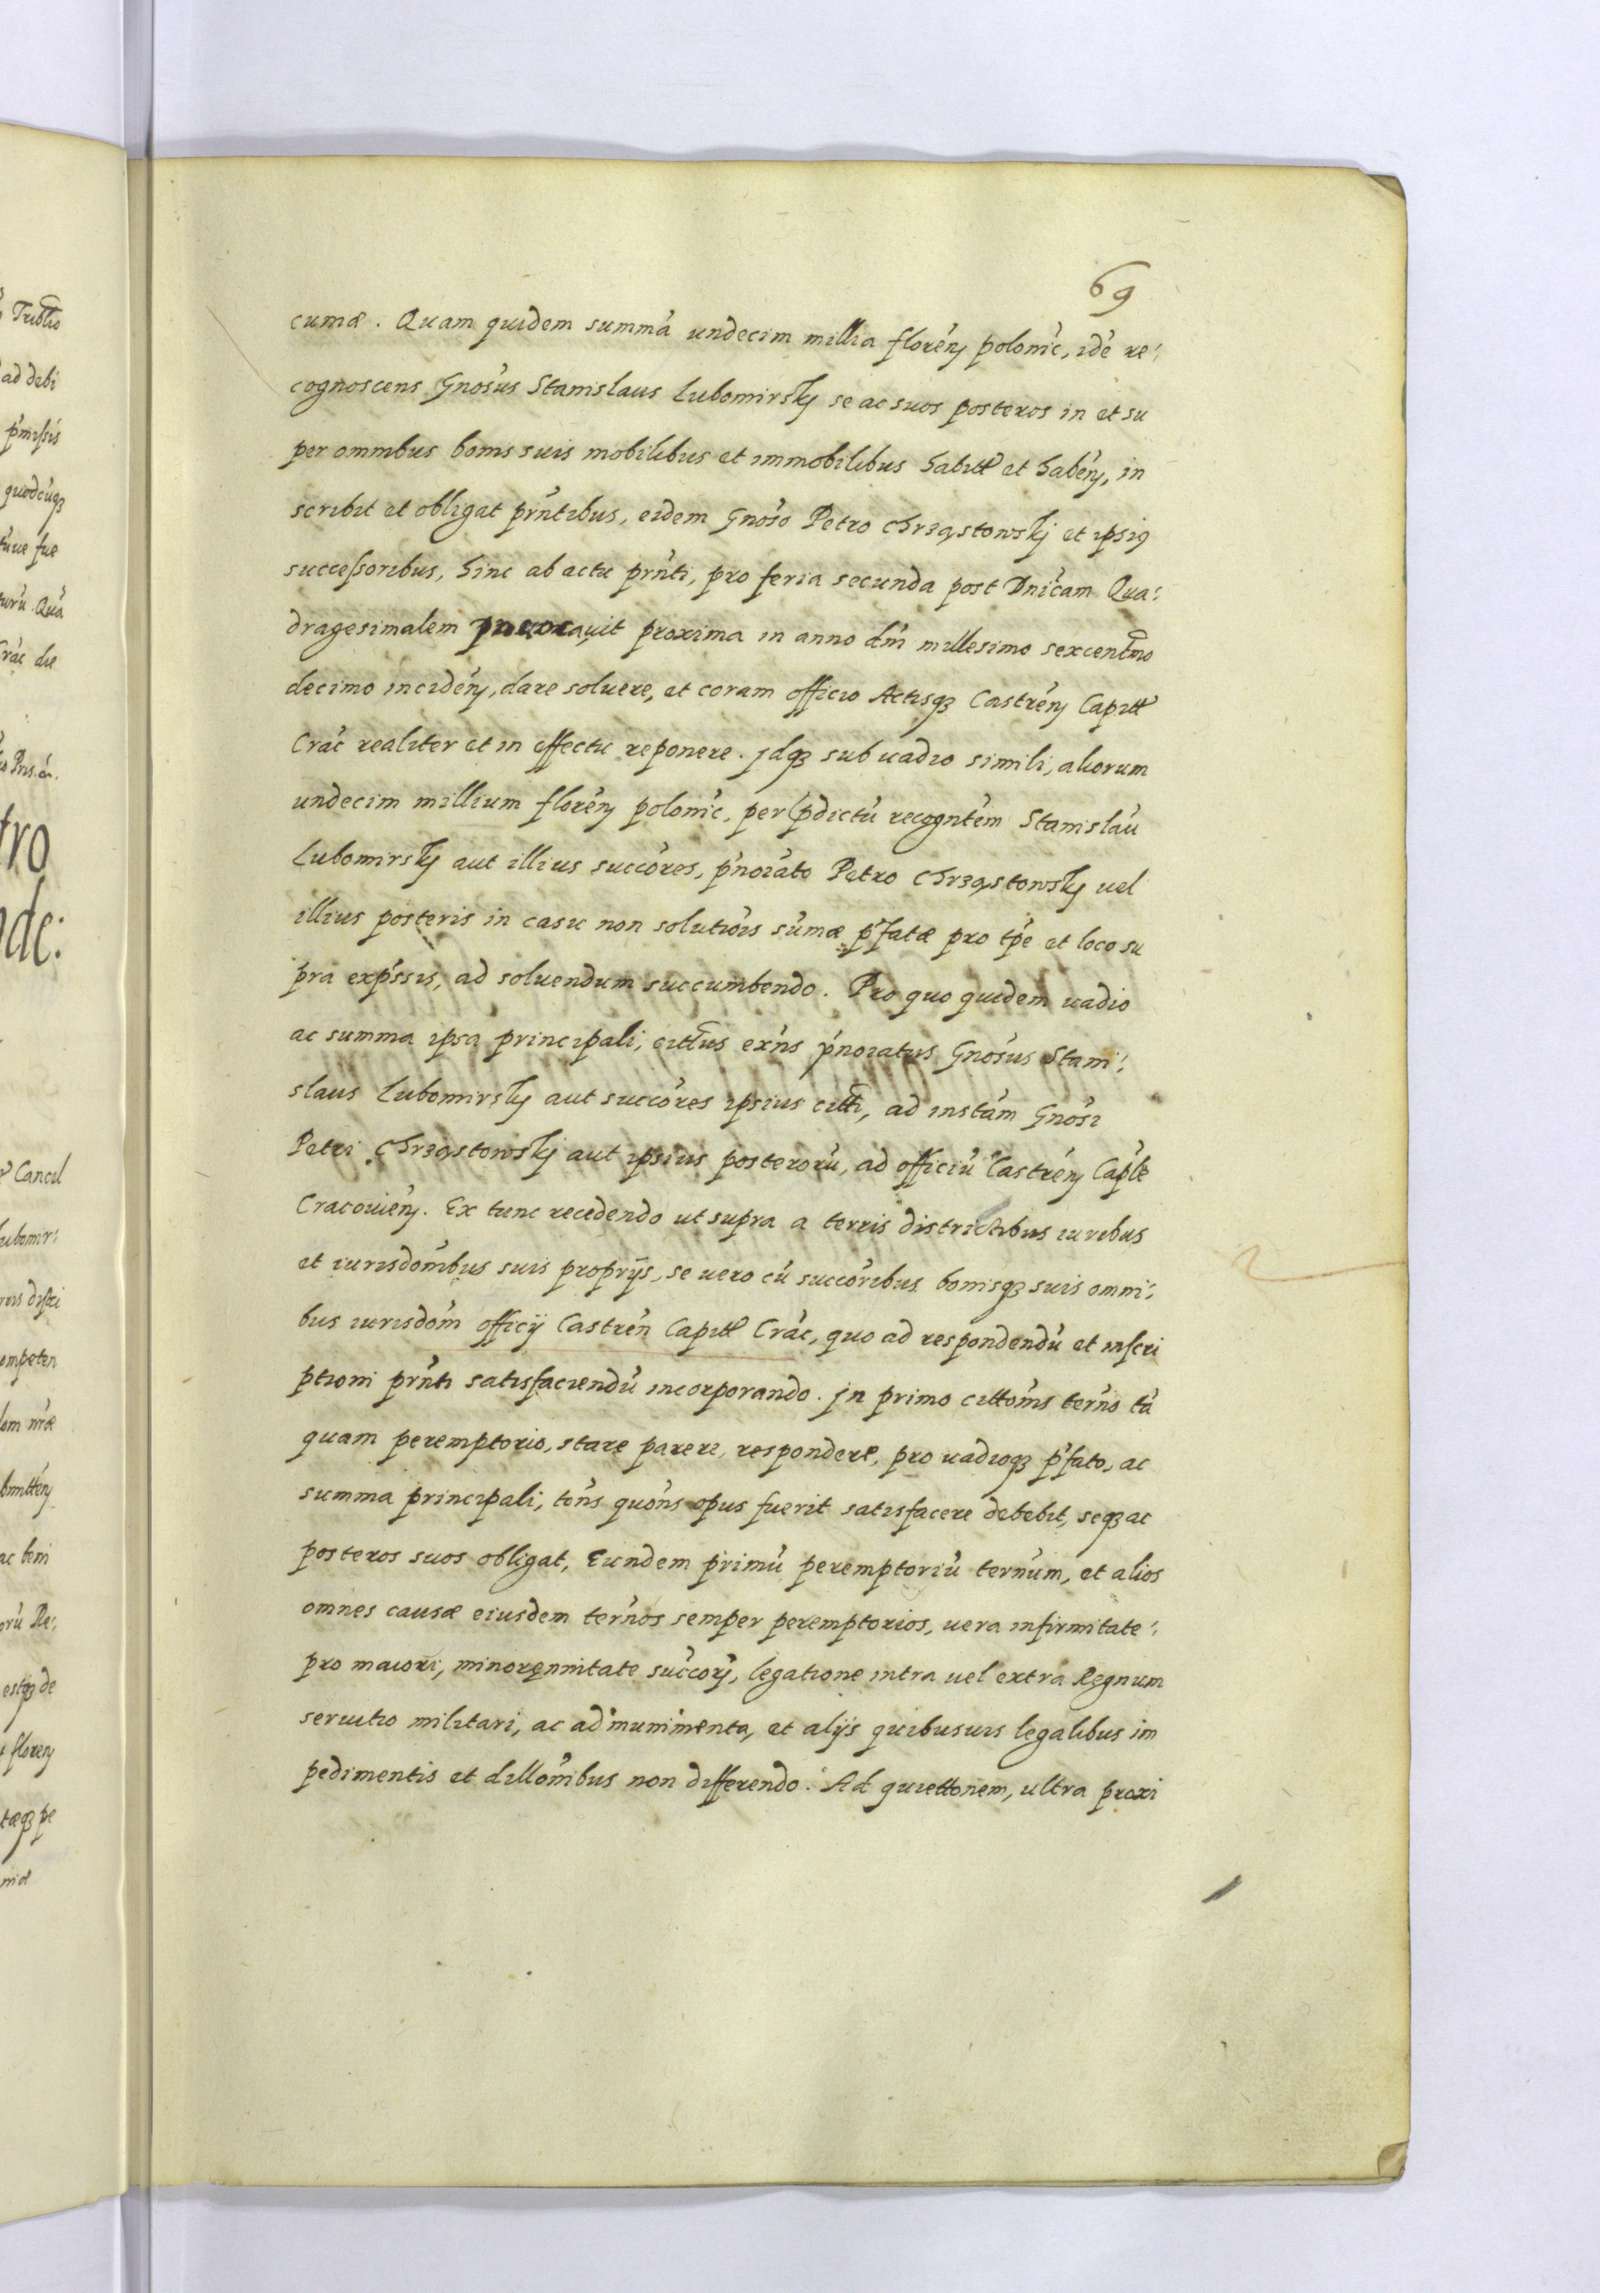 69
cumæ. Quam quidem summá undecim millia floréń polonić, idé re:
cognoscens Gnosús Stanislaus Lubomirsky se ac suos posteros in et su
per omnibus bonis suis mobilibus et immobilibus habitt et habéń, in
scribit et obligat prńtibus, eidem Gnosó Petro Chrząstowskj et ipsi9
successoribus, hinc ab actu prńti, pro feria secunda post Dnicam Qua:
dragesimalem Inuocauit proxima in anno dńi millesimo sexcentmo
decimo incidéń, dare soluere, et coram officio Actisqз Castréń Capitt
Crać realiter et in effectu reponere. jdqз sub uadio simili, aliorum
undecim millium floréń polonić, per pdictú recogntém Stanislaú
Lubomirsky aut illius succóres, pńoiáto Petro Chrząstowsky uel
illius posteris in casu non solutióis súmæ pfatæ pro tṕe et loco su
pra exṕssis, ad soluendum succumbendo. Pro quo quidem uadio
ac summa ipsa principali, cittus exńs pńoiatus Gnosús Stani:
slaus Lubomirsky aut succóres ipsius citti, ad instám Gnosí
Petri Chrząstowskj aut ipsius posterorú, ad officiú Castréń Caplé
Cracouiéń. Ex tunc recedendo ut supra a terris districtibus iuribus
et iurisdoníbus suis proprijs, se uero cú succóribus bonisqз suis omni:
bus iurisdoḿ officij Castréń Capitt Crać, quo ad respondendú et inscri
ptioni prńti satisfaciendú incorporando. jn primo cittońis terńo tá
quam peremptorio, stare parere respondere, pro uadioqз ṕfato, ac
summa principali, tońs quońs opus fuerit satisfacere debebit, seqз ac
posteros suos obligat, Eundem primú peremptoriú terńum, et alios
omnes causæ eiusdem terńos semper peremptorios, uera infirmitate:
pro maiori, minorennitate succorý, legatione intra uel extra Regnum
seruitio militari, ac ad munimenta, et alijs quibusuis legalibus im
pedimentis et dillońibus non differendo. Ad quiettonem, ultra proxi